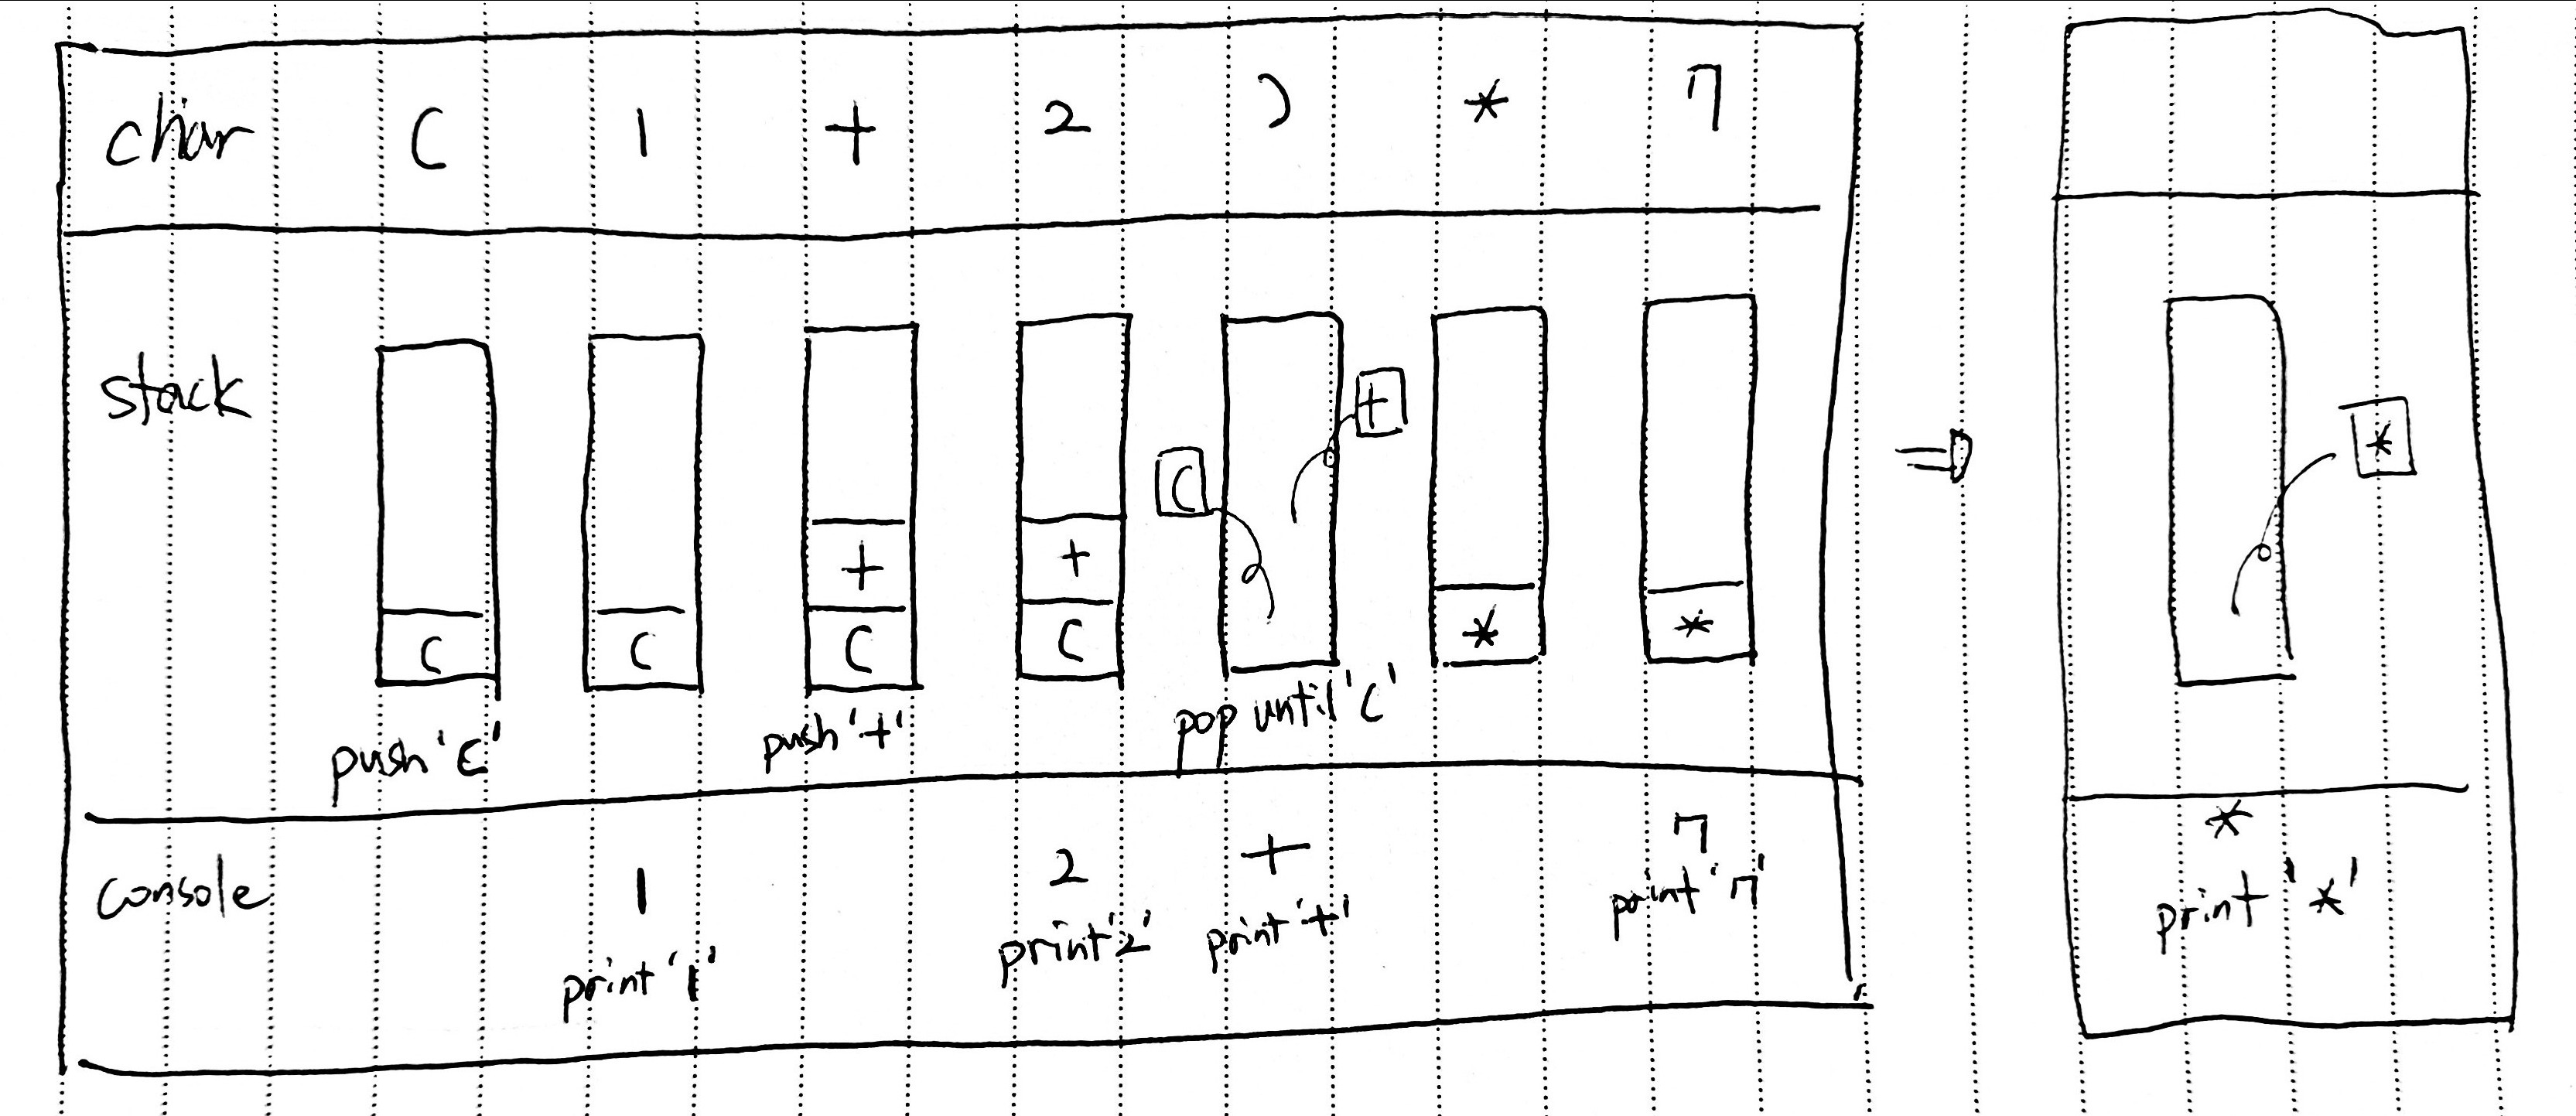 char ( 1 + 2 ) * 7
stack
+
( *
+ +
( ( ( ( * *
push '('
push '+'
pop until '('
console 1 2 + 7 *
print '1'
print '2'
print '+'
print '7'
print '*'